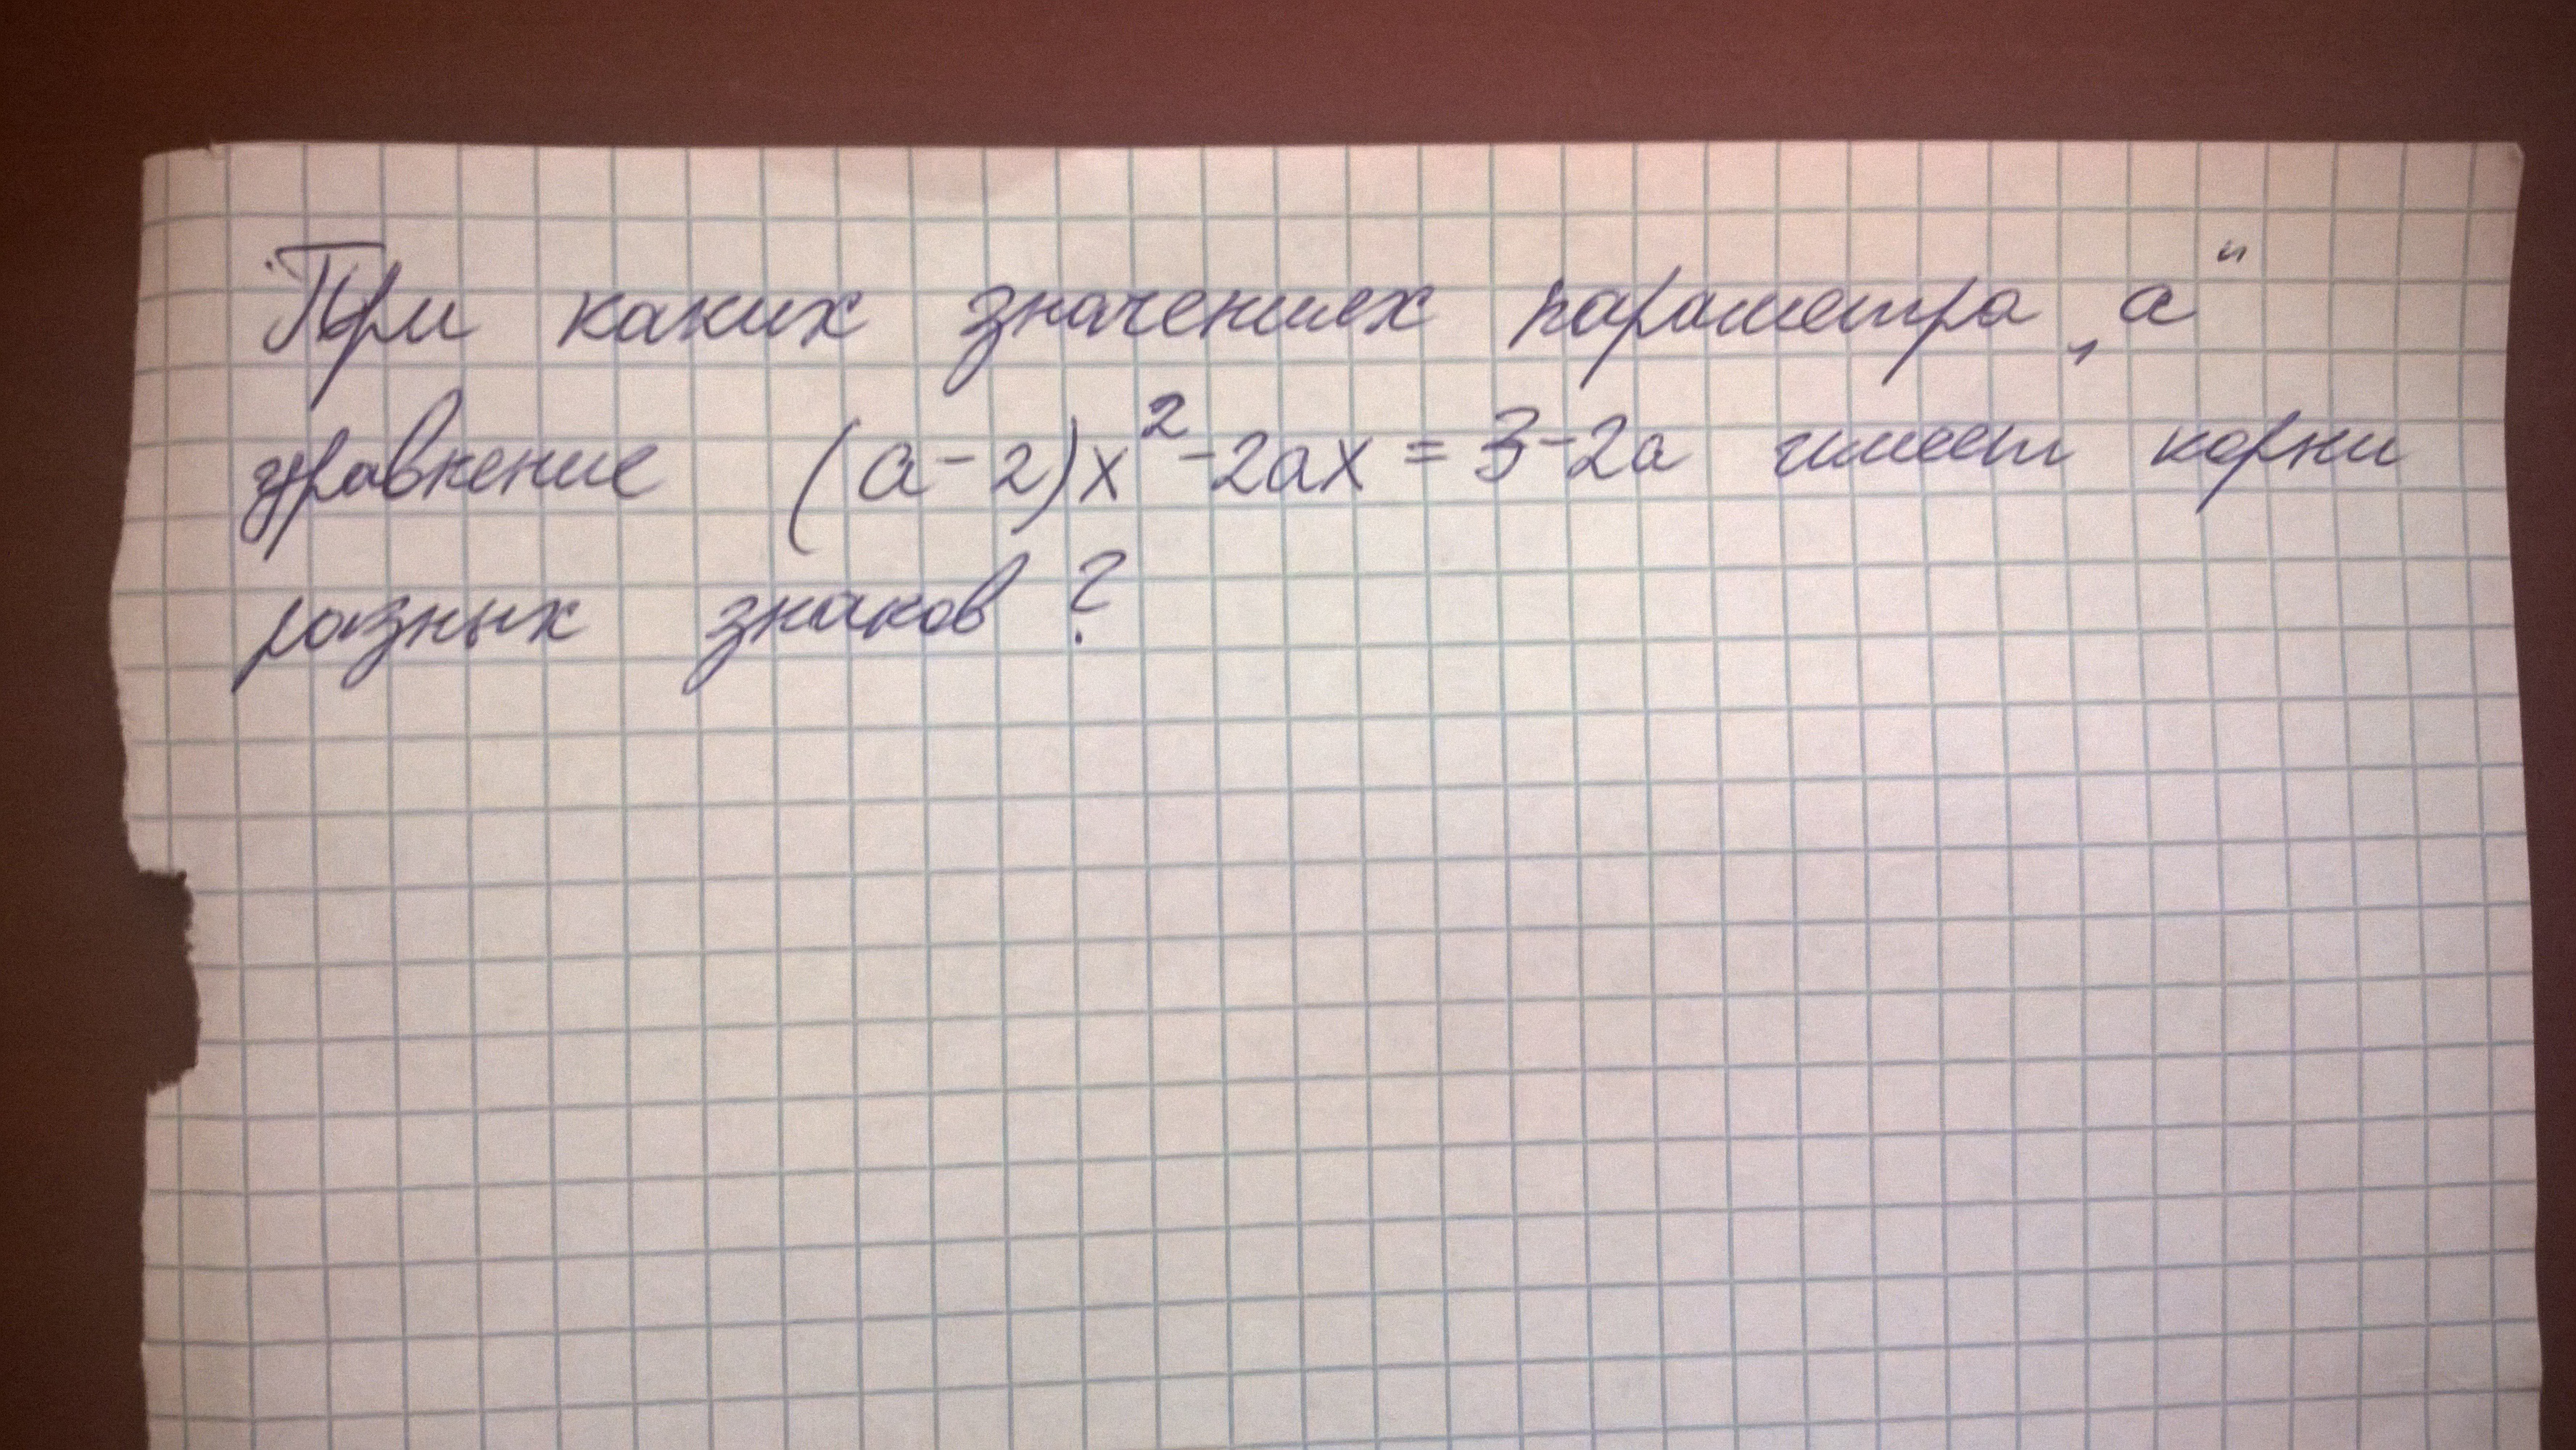 При каких значениях параметра „a“
уравнение (a-2)x²-2ax=3-2a имеет корни
разных знаков?